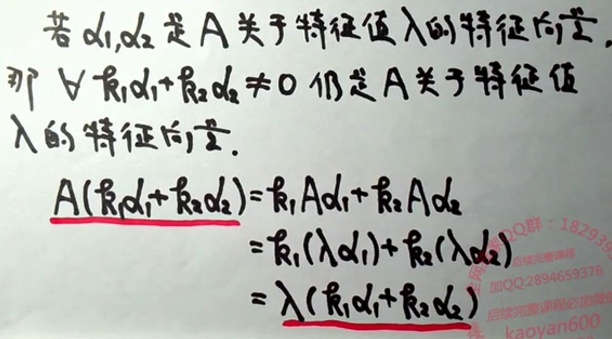 若α₁,α₂是A关于特征值λ的特征向量.
那∀ k₁α₁+k₂α₂≠0 仍是A关于特征值
λ的特征向量.
A(k₁α₁+k₂α₂)=k₁Aα₁+k₂Aα₂
=k₁(λα₁)+k₂(λα₂)
=λ(k₁α₁+k₂α₂)
QQ群：1829393
后续完整课程
加QQ:2894659376
后续完整课程必加微信
kaoyan600